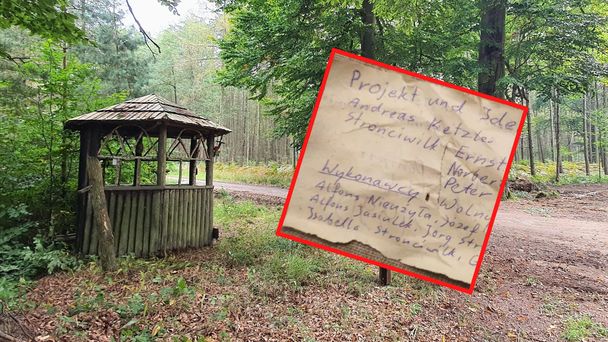 Projekt und Ide
Andreas Ketzler
Stronciwilk Ernst
Norber
Peter
Wykonawcy Wolni
Alfons Nieuzyla, Josef
Alfons Jasiulek, Jörg Str
Isabella Stronciwilk, L